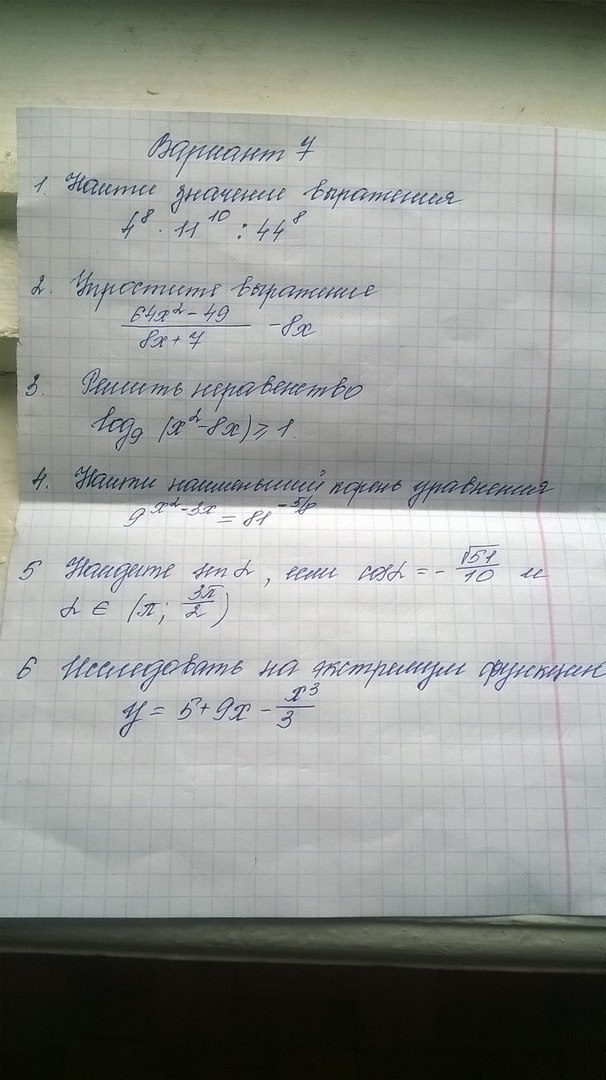 Вариант 7
1. Найти значение выражения
4⁸ · 11¹⁰ : 44⁸
2. Упростите выражение
(64x² - 49)/(8x + 7) - 8x
3. Решить неравенство
log₉ (x² - 8x) ≥ 1.
4. Найти наименьший корень уравнения
9^(x² - 3x) = 81^(-5/8)
5 Найдите sin α, если cos α = - √51/10 и
α ∈ (π; 3π/2)
6 Исследовать на экстремум функцию
y = 5 + 9x - x³/3